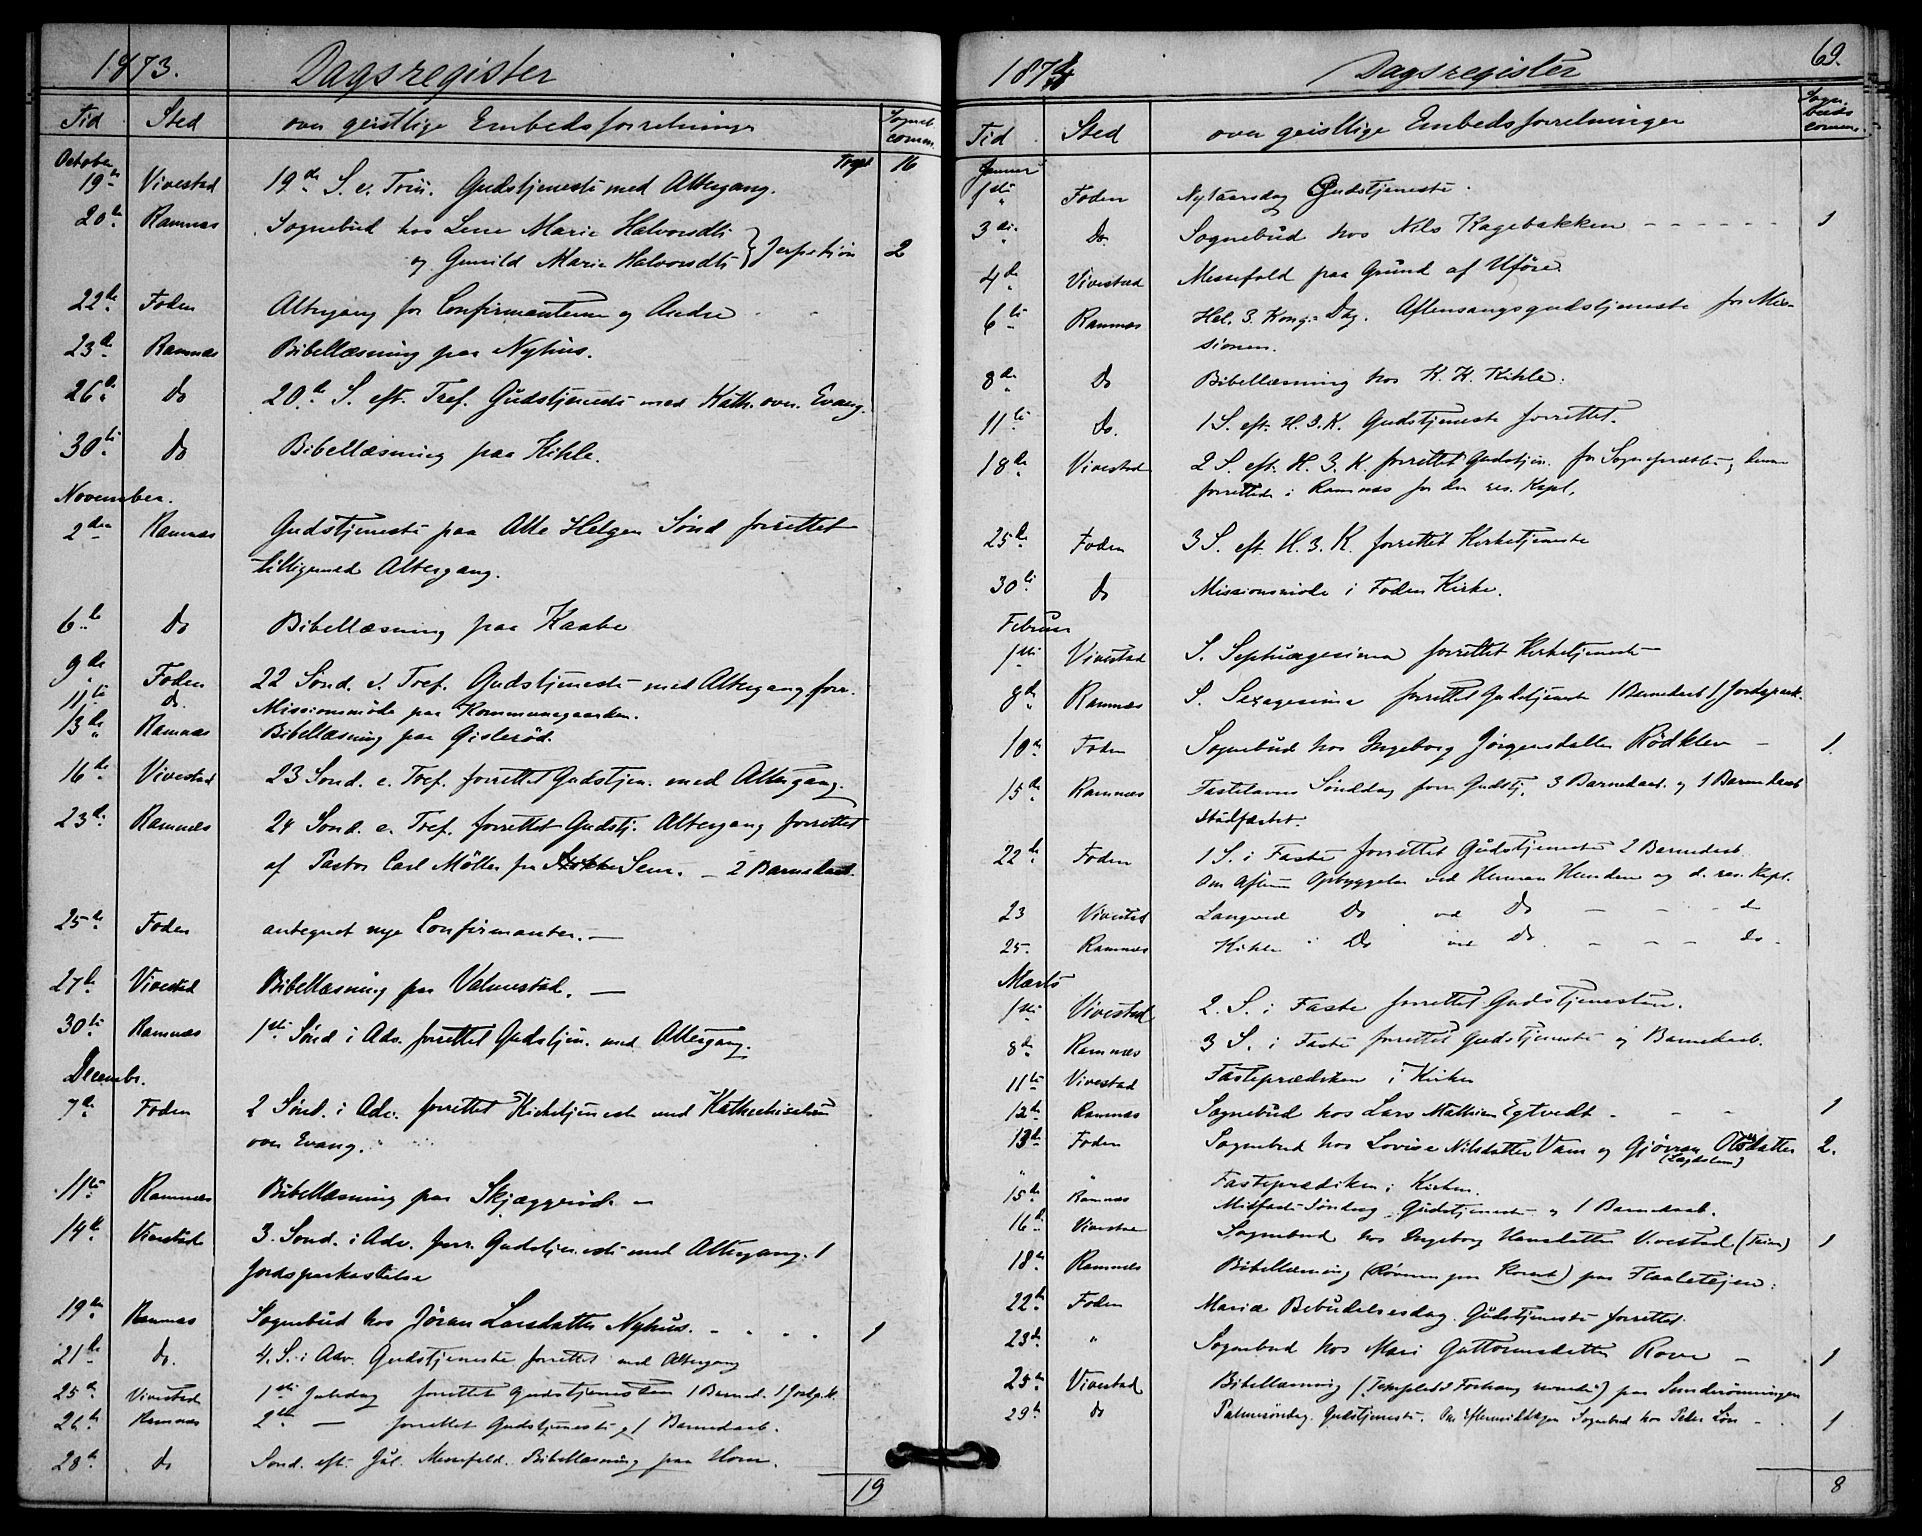 1873. Dagsregister
Tid Sted over geistlige Embedsforretninger Sogneb. comm.
October Trspt 16
19de Vivestad 19de S. e. Trin. Gudstjeneste med Altergang.
20de Ramnæs Sognebud hos Lene Marie Halvorsdtr
og Gunild Marie Halvorsdtr 2
22de Foden Altergang for Confirmanterne og Andre
23de Ramnæs Bibellæsning paa Nyhus.
26de do 20de S. eft. Tref. Gudstjeneste med Kath. over Evang.
30te do Bibellæsning paa Kihle.
November.
2den Ramnæs Gudstjeneste paa Alle Helgen Sönd forrettet
tilligemed Altergang.
6te do Bibellæsning paa Kaabe
9de Foden 22 Sond. e. Tref. Gudstjeneste med Altergang forr.
11te do. Missionsmöde paa Kommunegaarden.
13de Ramnæs Bibellæsning paa Gisleröd.
16de Vivestad 23 Sond. e. Tref. forrettet Gudstjen. med Altergang.
23de Ramnæs 24 Sond. e. Tref. forrettet Gudstj. Altergang forrettet
af Pastor Carl Möller fra Sem. – 2 Barnedaab.
25de Foden antegnet nye Confirmanter. –
27de Vivestad Bibellæsning paa Valmestad. –
30te Ramnæs 1ste Sönd i Adv. forrettet Gudstjen. med Altergang.
Decembr.
7de Foden 2 Sönd. i Adv. forrettet Kirketjeneste med Kathechisation
over Evang.
11te Ramnæs Bibellæsning paa Skjæggeröd –
14de Vivestad 3. Sond. i Adv. forr. Gudstjeneste med Altergang. 1
Jordspaakastelse
19de Ramnæs Sognebud hos Jöran Larsdatter Nyhus. 1
21de do. 4. S. i Adv. Gudstjeneste forrettet med Altergang
25de Vivestad 1ste Juledag forrettet Gudstjenesten 1 Barned. 1 Jordp.k.
26de Ramnæs 2den – forrettet Gudstjeneste, 1 Barnedaab.
28de do Sond. eft. Jul. Messefald. Bibellæsning paa Horn.
19
1874 Dagsregister 69.
Tid Sted over geistlige Embedsforretninger Sogne- buds comm.
Januar
1ste Foden Nytaarsdag Gudstjeneste.
3die Do Sognebud hos Nils Kagebakken – – – – – – 1
4de Vivestad Messefald paa Grund af Uföre.
6te Ramnæs Hel. 3. Kong. Dag. Aftensangsgudstjeneste for Mis-
sionen.
8de Do Bibellæsning hos K. K. Kihle.
11te Do. 1 S. eft. H. 3. K. Gudstjeneste forrettet.
18de Vivestad 2 S. eft. H. 3. K. forrettet Gudstjen. for Sognepræsten, denne
forrettede i Ramnæs for den res. Kapl.
25de Foden 3 S. eft. H. 3. K. forrettet Kirketjeneste
30te do Missionsmöde i Foden Kirke.
Februar
1ste Vivestad S. Septuagesima forrettet Kirketjeneste
8de Ramnæs S. Sexagesima forrettet Gudstjeneste 1 Barnedaab 1 Jordspaak.
10de Foden Sognebud hos Ingeborg Jörgensdatter Rödklev – 1.
15de Ramnæs Fastelavns Sönddag forr. Gudstj. 3 Barnedaab. og 1 Barnedaab
stadfæstet.
22de Foden 1 S. i Faste forrettet Gudstjeneste 2 Barnedaab.
Om Aftenen Opbyggelse ved Herman og d. res. Kapl.
23 Vivestad Langved Do ved Do – – – do
25. Ramnæs Kihle Do ved Do – – – do.
Marts
1ste Vivestad 2. S. i Faste forrettet Gudstjenesten.
8de Ramnæs 3 S. i Faste forrettet Gudstjeneste og Barnedaab.
11te Vivestad Fasteprædiken i Kirken
12de Ramnæs Sognebud hos Lars Mathisen Egtvedt – – – 1
13de Foden Sognebud hos Lovise Nilsdatter Vam og Gjöran Olsdatter 2.
" " Fasteprædiken i Kirken.
15de Ramnæs Midfaste Söndag Gudstjeneste og 1 Barnedaab.
16de Vivestad Sognebud hos Ingeborg Hansdatter Vivestad 1
18de Ramnæs Bibellæsning (Röveren paa Korset) paa Flaateigen.
22de Foden Mariæ Bebudelsesdag Gudstjeneste forrettet.
23de " Sognebud hos Mari Guttormsdatter Rove – 1
25de Vivestad Bibellæsning (Templets Forhæng revnede) paa Sunderönningen
29de do Palmesöndag. Gudstjeneste. Om Eftermiddagen Sognebud hos Peder – 1
8